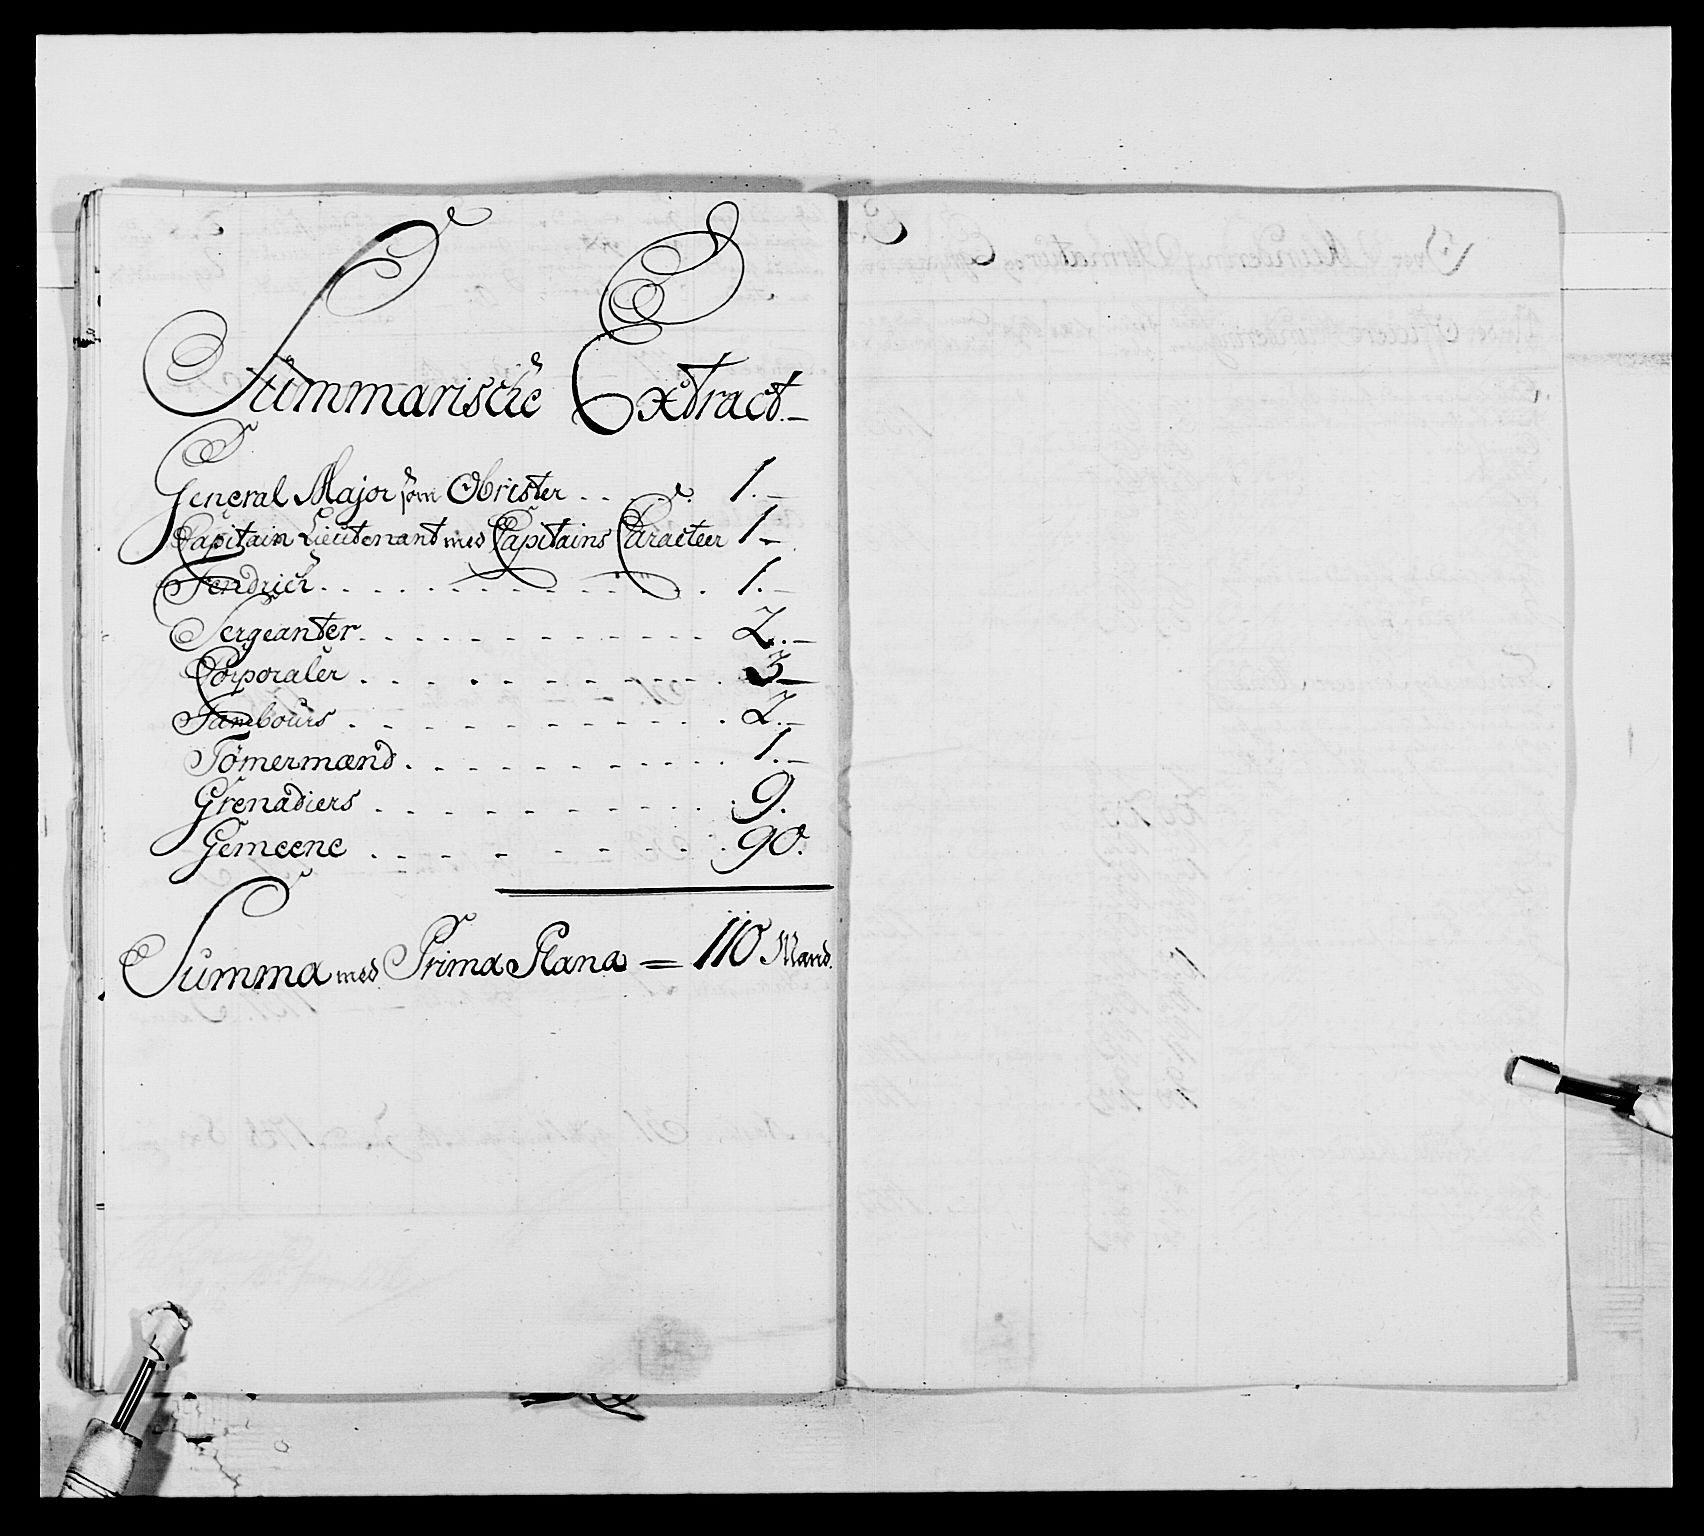 Summarische Extract.
General Major som Obrister . . . . . 1.
Capitain Lieutenant med Capitains Caracteer 1
Fendrich . . . . . . . . . . 1.
Sergeanter . . . . . . . . . . 2.
Corporaler . . . . . . . . . . 3
Tambours . . . . . . . . . . 2.
Tømermænd . . . . . . . . . . 1.
Grenadiers . . . . . . . . . . 9.
Gemeene . . . . . . . . . . 90.
Summa med Prima Plana = 110 Mand.